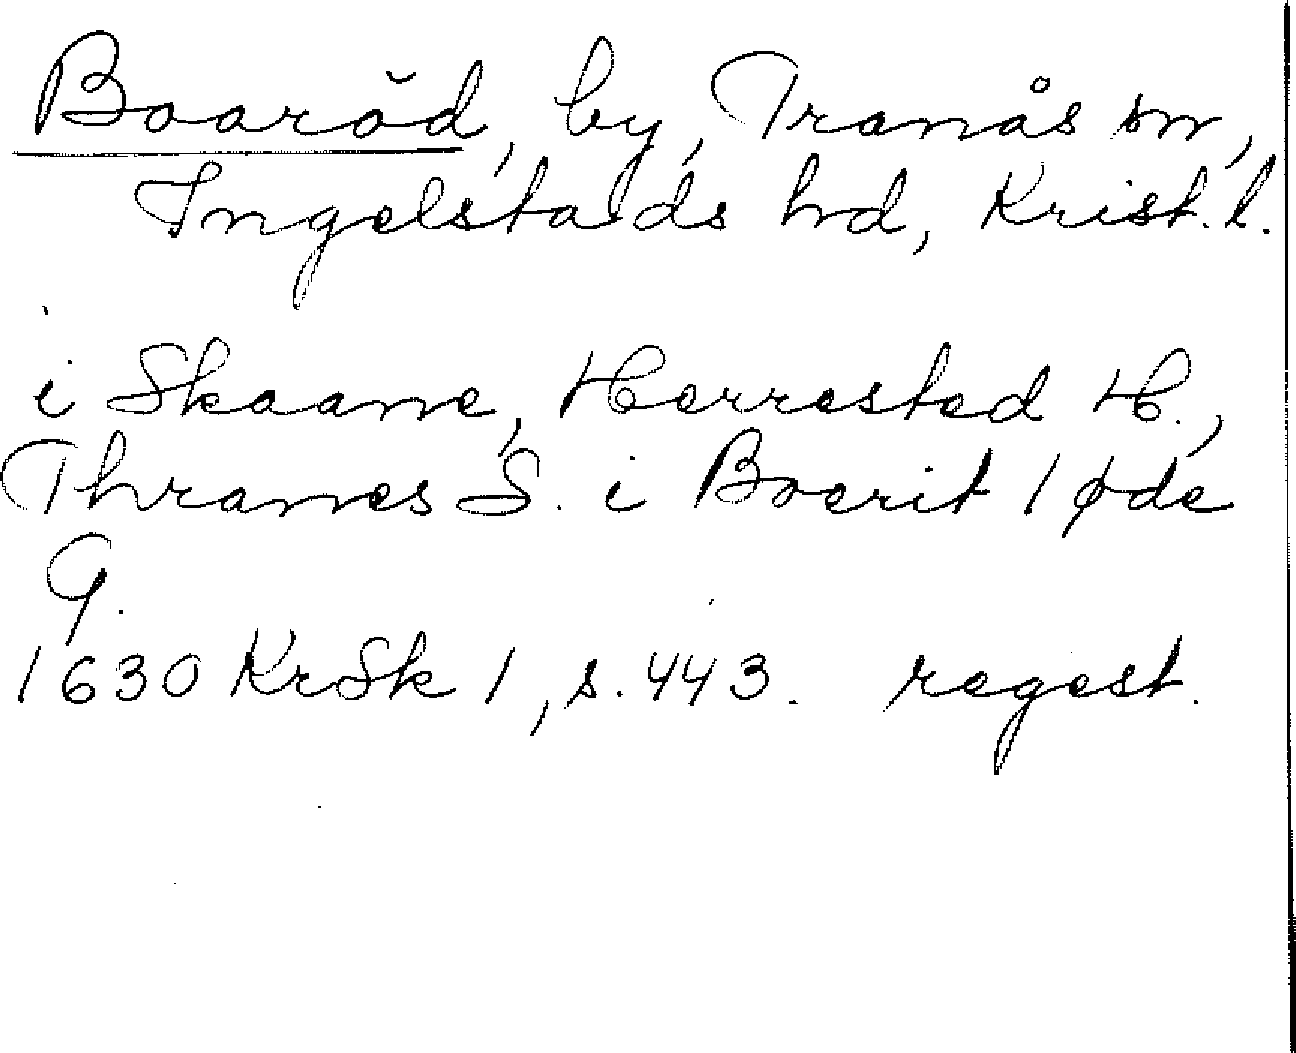 Boaröd, by, Tranås sn,
Ingelstads hd, Krist. l.
i Skaane, Herrested H.,
Thranes S. i Boerit 1 øde
G.
1630 KrSk 1, s. 443. regest.